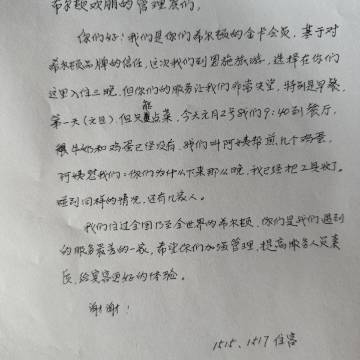 希尔顿欢朋的管理层们,
你们好!我们是你们希尔顿的金卡会员,基于对
希尔顿品牌的信任,这次我们到恩施旅游,选择在你们
这里入住三晚,但你们的服务让我们非常失望,特别是早餐,
第一天(元旦),但只能点菜,今天元月2号我们9:40到餐厅,
牛奶和鸡蛋已经没有,我们叫阿姨帮煎几个鸡蛋,
阿姨怼我们:你们为什么下来那么晚,我已经把工具收了。
碰到同样的情况,还有几家人。
我们住过全国乃至全世界的希尔顿,你们是我们遇到
的服务最差的一家,希望你们加强管理,提高服务人员素
质,给宾客更好的体验。
谢谢!
1515、1517住客